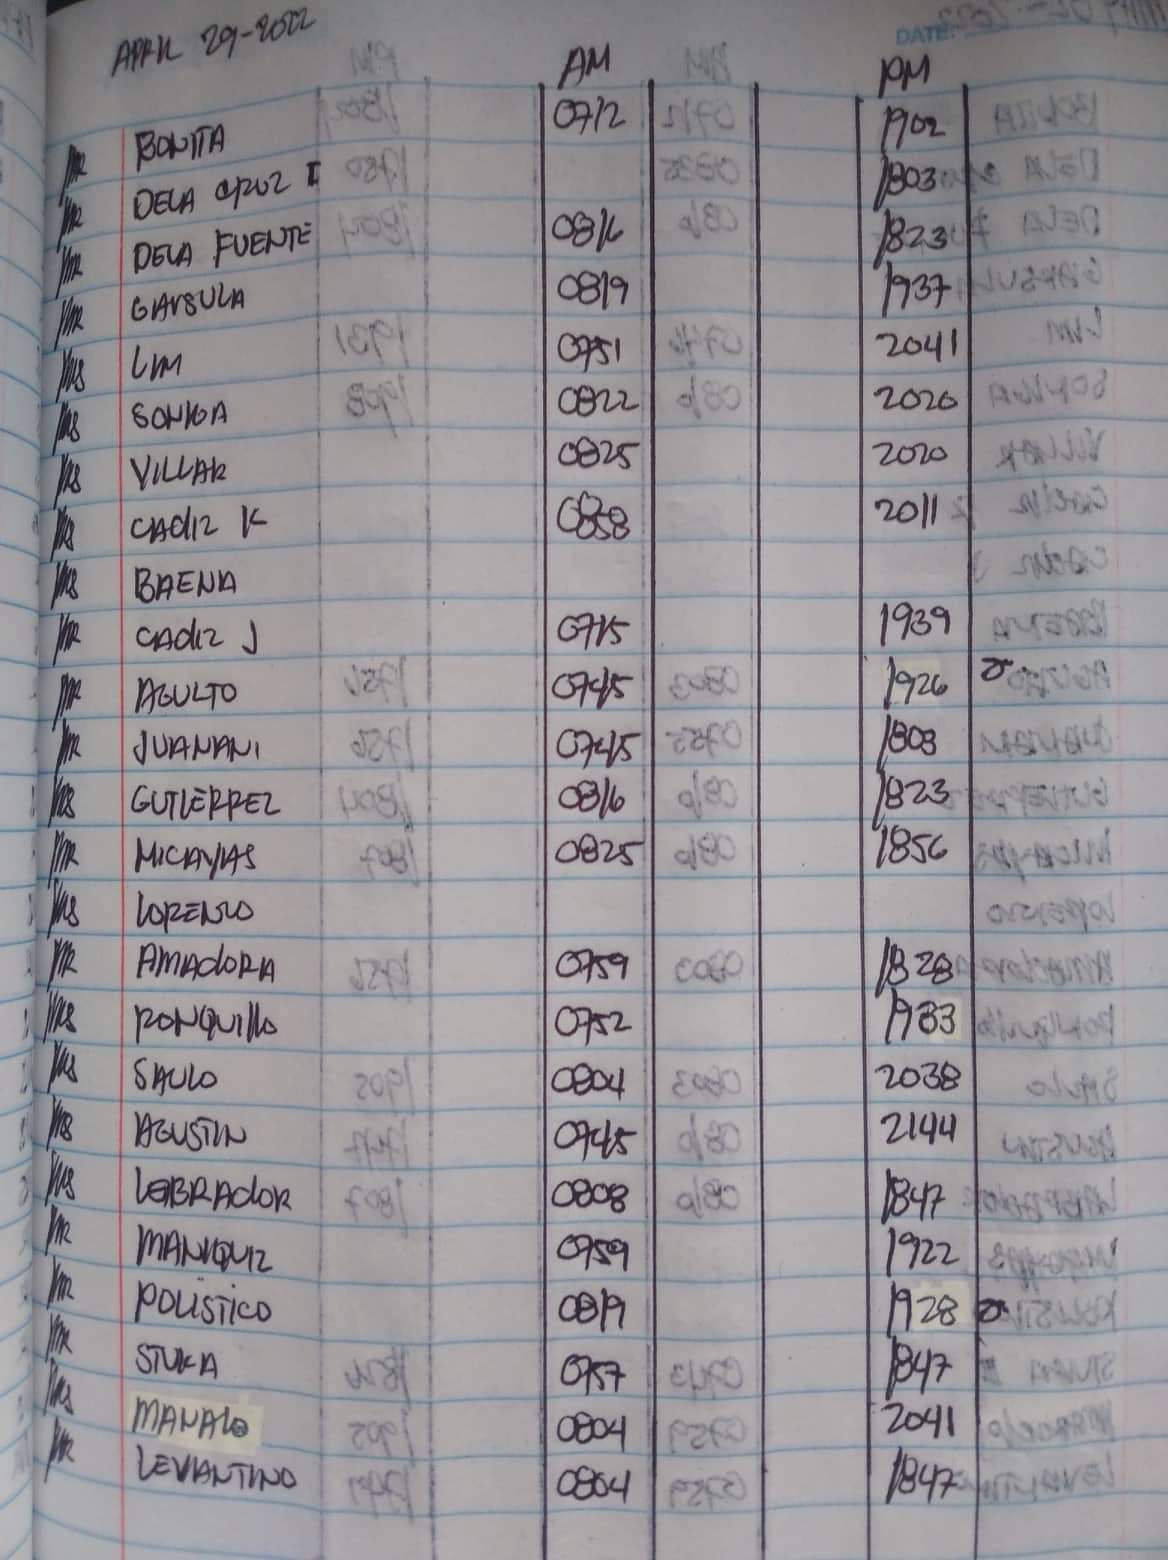 APRIL 29-2022
DATE:
AM PM
MR BONITA 0712 1902
MR DELA CRUZ I 1803
MR DELA FUENTE 0816 1823
MR GARSULA 0819 1937
MS LIM 0751 2041
MS SONGA 0822 2020
MS VILLAR 0825 2020
MS CADIZ K 2011
MS BAENA
MR CADIZ J 0715 1939
MR AGULTO 0745 1926
MR JUANANI 0745 1808
MS GUTIERREZ 0816 1823
MR MICAYAS 0825 1856
MS LORENZO
MR AMADORA 0759 1828
MS RONQUILLO 0752 1933
MS SAULO 0804 2038
MS AGUSTIN 0745 2144
MS LABRADOR 0808 1847
MR MANIQUIZ 0759 1922
MR POLISTICO 0819 1928
MR STUKA 0757 1847
MS MANALO 0804 2041
MR LEVANTINO 0804 1847